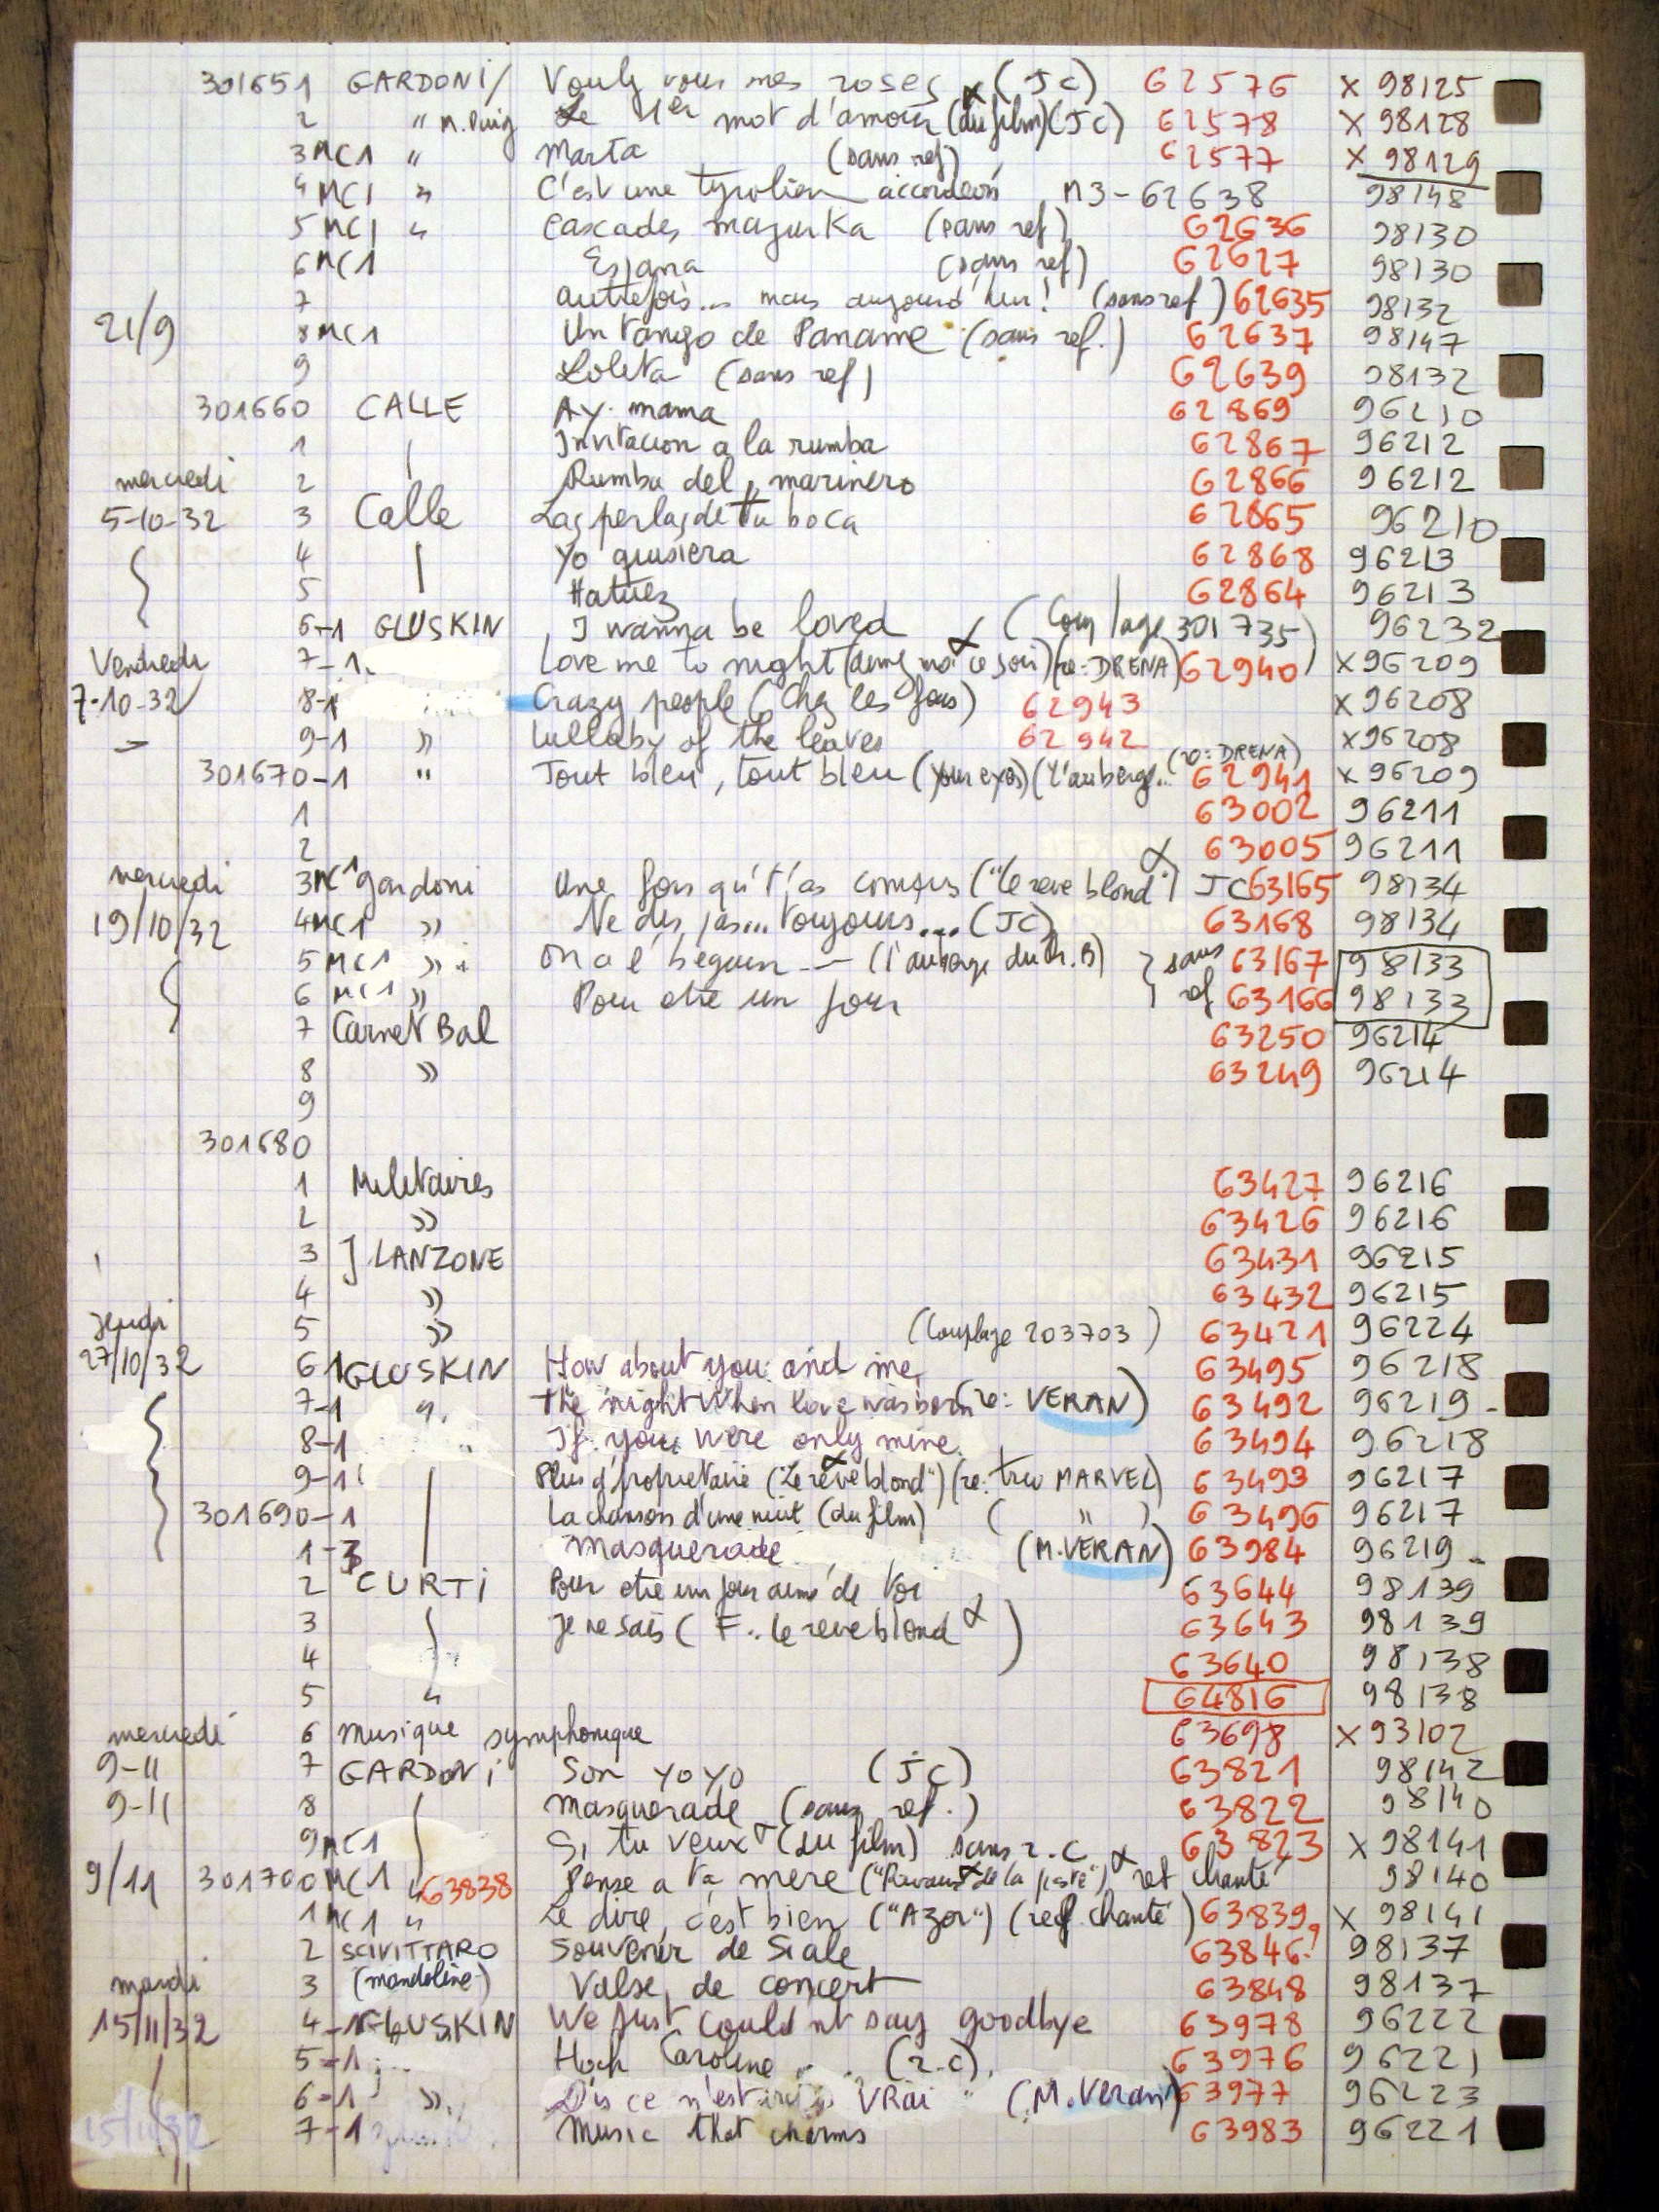 301651 GARDONI/ Voulez vous mes roses x (JC) 62576 X 98125
2 " M. Puig Le 1er mot d'amour (du film) (JC) 62578 X 98128
3 MC1 " Marta (sans ref) 62577 X 98129
4 MC1 " C'est une tyrolien accordeon M3-62638 98148
5 MC1 " Cascades mazurka (sans ref) 62636 98130
6 MC1 Espana (sans ref) 62627 98130
7 autrefois... mais aujourd'hui! (sans ref) 62635 98132
21/9 8 MC1 Un tango de Paname (sans ref.) 62637 98147
9 Lolita (sans ref) 62639 98132
301660 CALLE Ay mama 62869 96210
1 Invitacion a la rumba 62867 96212
mercredi 2 Rumba del marinero 62866 96212
5-10-32 3 Calle Las perlas de tu boca 62865 96210
4 Yo quisiera 62868 96213
5 Hatuez 62864 96213
6-1 GLUSKIN I wanna be loved (Couplage 301735) 96232
Vendredi 7-1 Love me to night (aimez moi ce soir) (re: DRENA) 62940 X 96209
7-10-32 8-1 Crazy people (Chez les fous) 62943 X 96208
9-1 » Lullaby of the leaves 62942 X 96208
301670-1 " Tout bleu, tout bleu (your eyes) (L'auberg... (re: DRENA) 62941 X 96209
1 63002 96211
2 63005 96211
mercredi 3 MC1 gardoni Une fois qu't'as compris ("le reve blond") JC 63165 98134
19/10/32 4 MC1 » Ne dis pas... toujours.... (JC) 63168 98134
5 MC1 » On a l'beguin -- (l'auberge du Ch. B) } sans 63167 98133
6 MC1 » Pour etre un jour ref 63166 98133
7 Carnet Bal 63250 96214
8 » 63249 96214
9
301680
1 Militaires 63427 96216
2 » 63426 96216
3 J LANZONE 63431 96215
4 » 63432 96215
jeudi 5 » (Couplage 203703) 63421 96224
27/10/32 6 1 GLUSKIN How about you and me, 63495 96218
7-1 " The night When love was born (re: VERAN) 63492 96219
8-1 If you were only mine 63494 96218
9-1 Plus d'proprietaire ("Le rêve blond") (re: trio MARVEL) 63493 96217
301690-1 La chanson d'une nuit (du film) ( " ) 63496 96217
1-3 masquerade (M. VERAN) 63984 96219
2 CURTI Pour etre un jour aimé de toi 63644 98139
3 Je ne sais (F.. le reve blond) 63643 98139
4 63640 98138
5 " 64816 98138
mercredi 6 Musique symphonique 63698 X 93102
9-11 7 GARDONI Son yoyo (JC) 63821 98142
9-11 8 Masquerade (sans ref.) 63822 98140
9 MC1 Si tu veux (du film) sans r.c 63823 X 98141
9/11 301700 MC1 " 63838 Pense a ta mere ("Rivaux de la piste") ref chanté 98140
1 MC1 " Le dire, c'est bien ("Azor") (ref. chanté) 63839 X 98141
2 SCIVITTARO Souvenir de Siale 63846? 98137
mardi 3 (mandoline) Valse de concert 63848 98137
15/11/32 4-1 GLUSKIN We just couldn't say goodbye 63978 96222
5-1 Hoch Caroline (r.c). 63976 96221
6-1 » Dis ce n'est vrai (M. Veran) 63977 96223
15/11/32 7-1 Music that charms 63983 96221